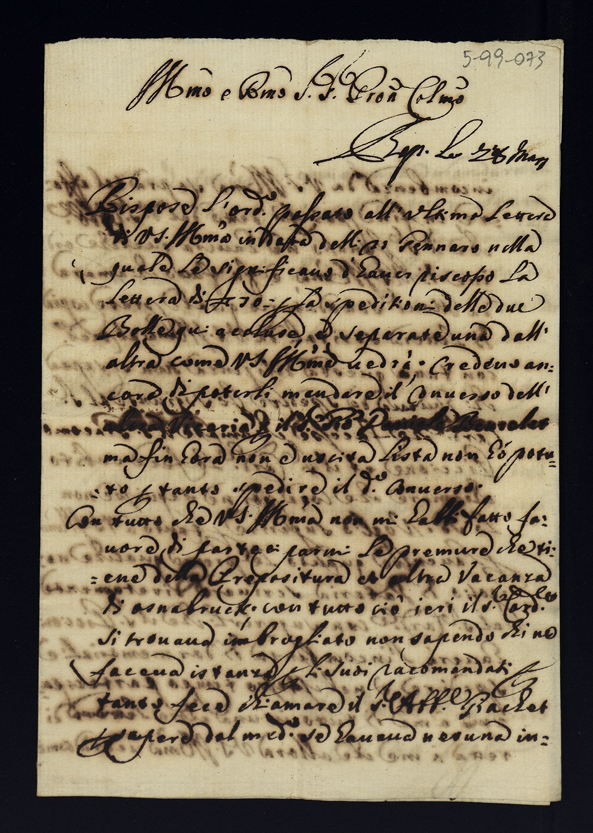 5-99-073
Illmo e Rmo S. S. Pron Colmo
Li 28 Mar
Rispose l'ord. passato all'ultima Lettera
di V S. Illma intesta delli 21 Gennaro nella
quale Le significavo d'haver riscosso La
Lettera di La speditione delle due
Bolle qui accluse, e separate una dall'
altra come V S. Illma vedrà. Credevo an=
cora di poterli mandare il Converso dell'
altra il S.
ma fin hora non è uscita Lista non hò potu=
to p tanto spedire il d.o Converso.
Con tutto che V S. Illma non mi habbi fatto fa=
vore di parteciparmi Le premure che ti=
=ene della Prepositura et altra Vacanza
di osnabruck. con tutto ciò ieri il S. Card.
si trovava imbrogliato non sapendo chi ne
faceva istanza p li suoi racomandati
tanto fece chiamare il S. Abb. Racket
p sapere dal med.o se haveva nesuna in=